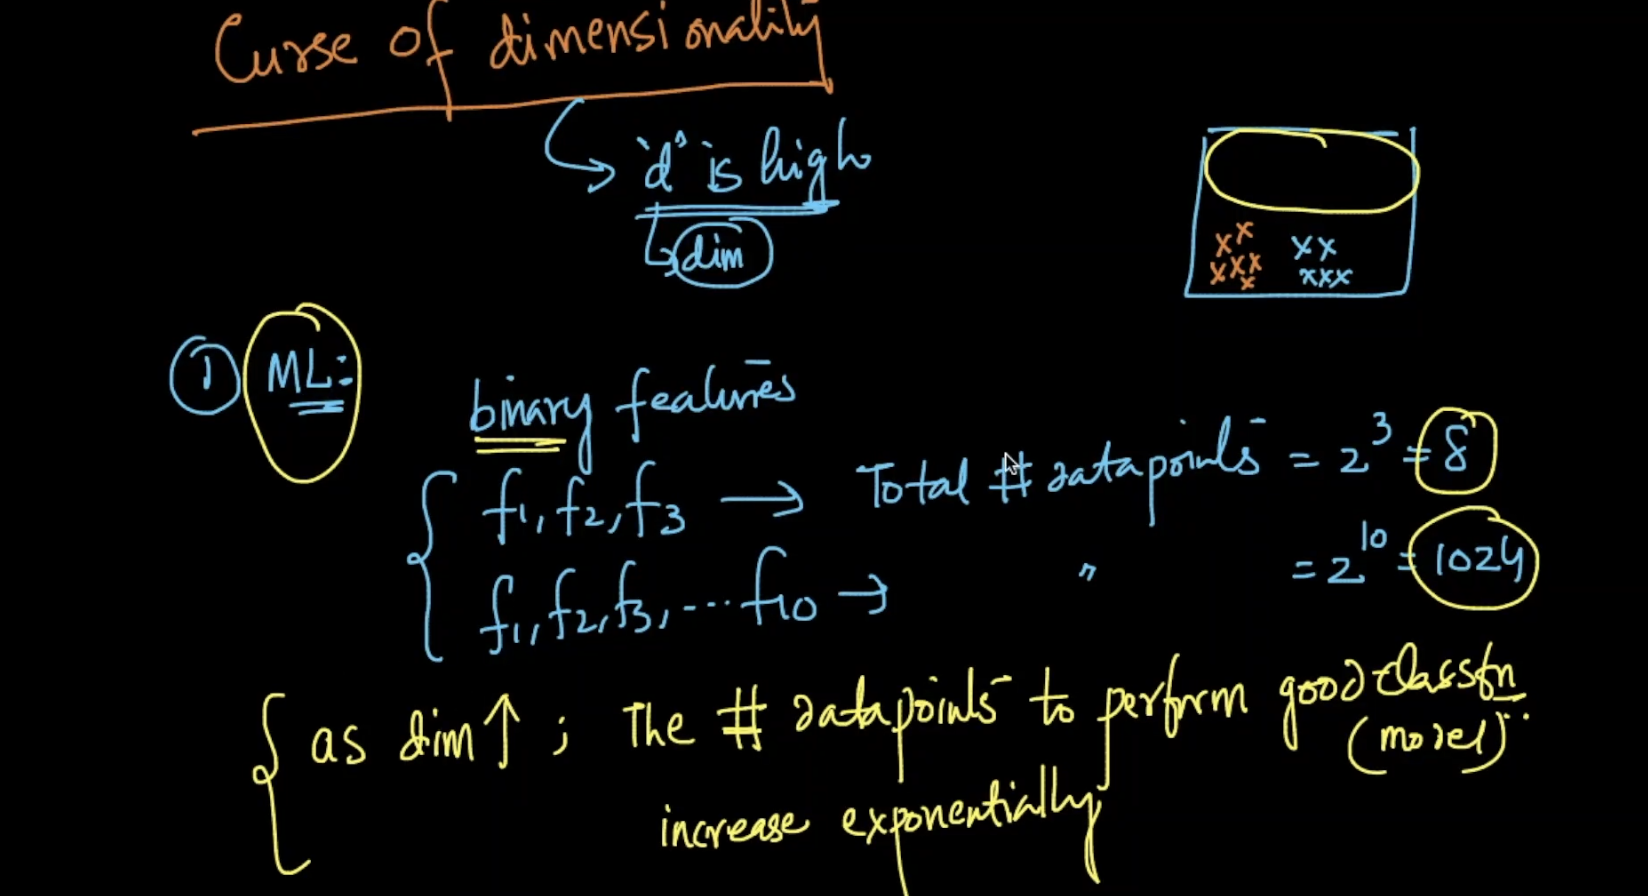 Curse of dimensionality
'd' is high
dim
1 ML:
binary features
f1, f2, f3 → Total # datapoints = 2^3 = 8
f1, f2, f3, ... f10 → " = 2^10 = 1024
as dim ↑ ; The # datapoints to perform good classfn
(model)
increase exponentially